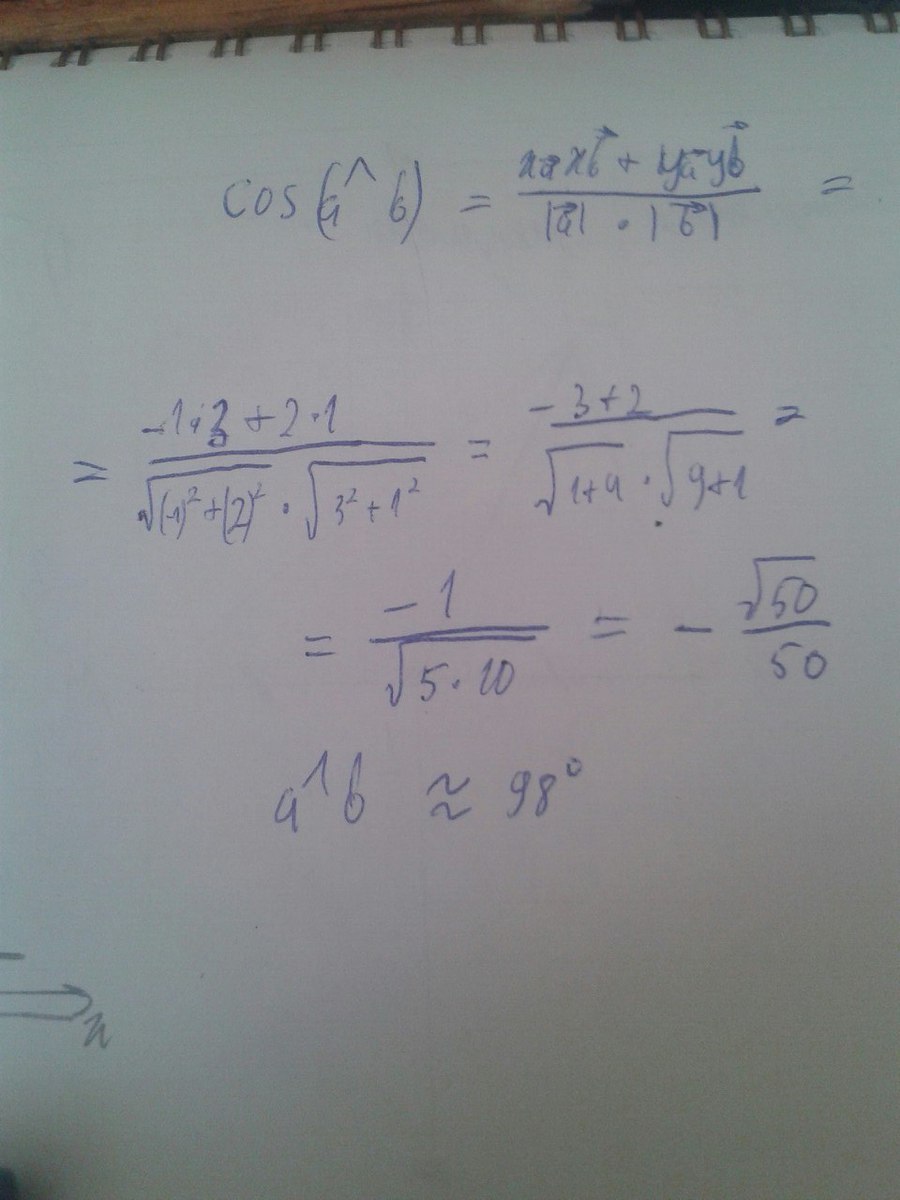 cos(a^b) = (x_a⃗ x_b⃗ + y_a⃗ y_b⃗) / (|a⃗| · |b⃗|) =
= (-1·3 + 2·1) / (√((-1)² + (2)²) · √(3² + 1²)) = (-3+2) / (√(1+4) · √(9+1)) =
= -1 / √(5·10) = - √50 / 50
a^b ≈ 98°
x